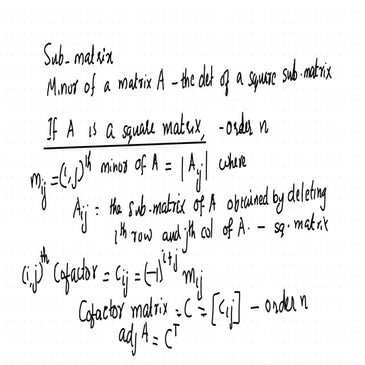 Sub-matrix
Minor of a matrix A - the det of a square sub-matrix
If A is a square matrix, - order n
m_ij = (i,j)^th minor of A = |A_ij| where
A_ij = the sub-matrix of A obtained by deleting
i^th row and j^th col of A. - sq. matrix
(i,j)^th Cofactor = C_ij = (-1)^(i+j) m_ij
Cofactor matrix = C = [C_ij] - order n
adj A = C^T